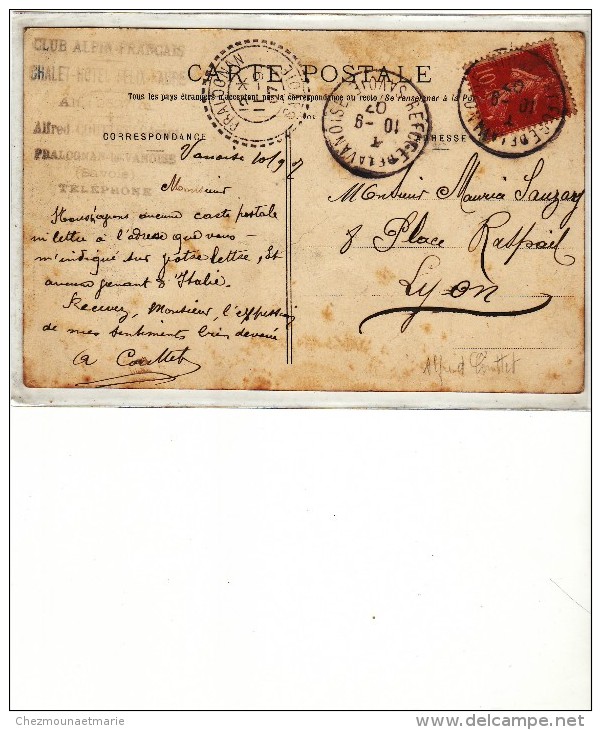 CLUB ALPIN FRANÇAIS
CHALET-HOTEL FELIX FAURE
Alfred
PRALOGNAN-la-VANOISE
(Savoie)
TÉLÉPHONE
CARTE POSTALE
Tous les pays étrangers n'acceptent pas la correspondance au recto (Se renseigner à la Po
CORRESPONDANCE
ADRESSE
REFUGE DE LA VANOISE SAVOIE
10 -9
07
10
Vanoise 10/9 07
Monsieur
aucune carte postale
ni lettre à l'adresse que vous
m'indiqué sur votre lettre, Et
aucune venant d'Italie.
Recevez, Monsieur, l'expression
de mes sentiments bien dévoué
A Couttet
Monsieur Maurice Sauzay
8 Place Raspail
Lyon
Alfred Couttet
Chezmounaetmarie
www.delcampe.net